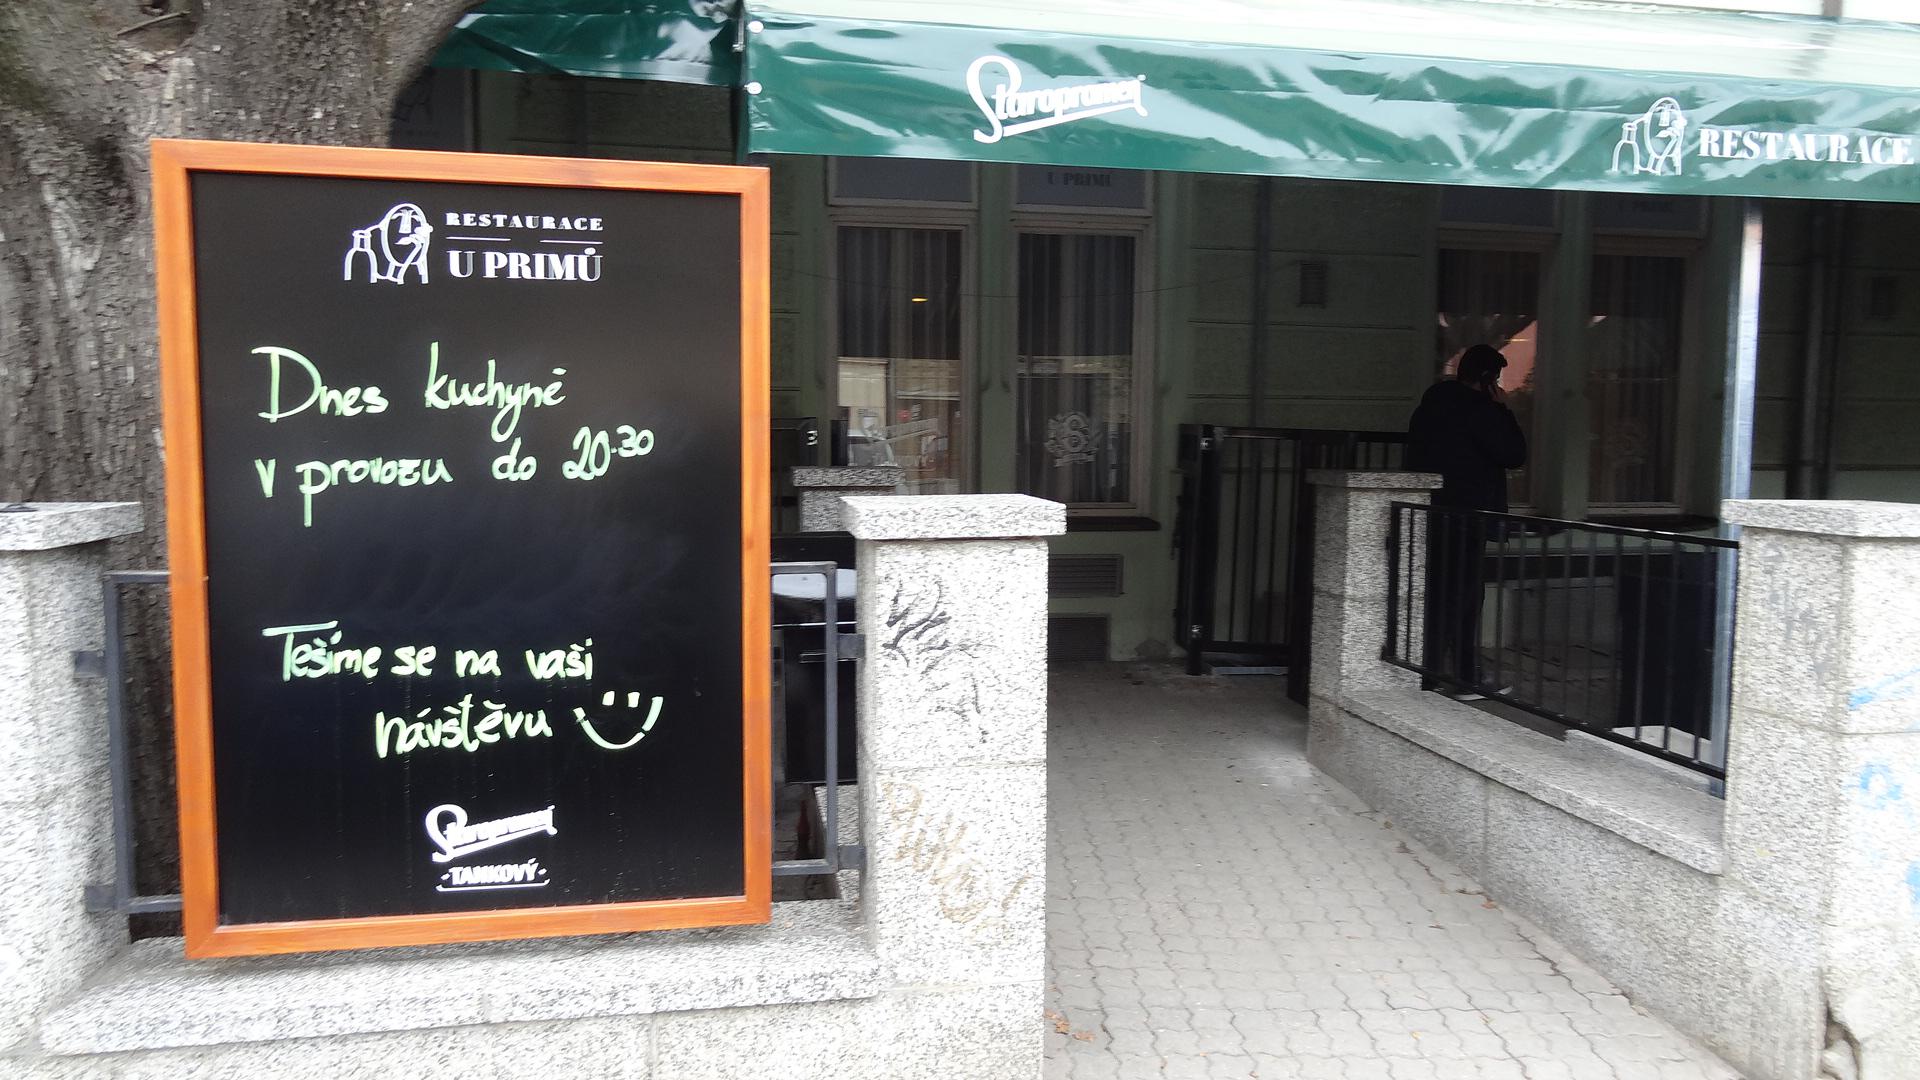 Staropramen
RESTAURACE
U PRIMŮ
RESTAURACE
U PRIMŮ
Dnes kuchyně
v provozu do 20.30
Těšíme se na vaši
návštěvu
Staropramen
·TANKOVÝ·